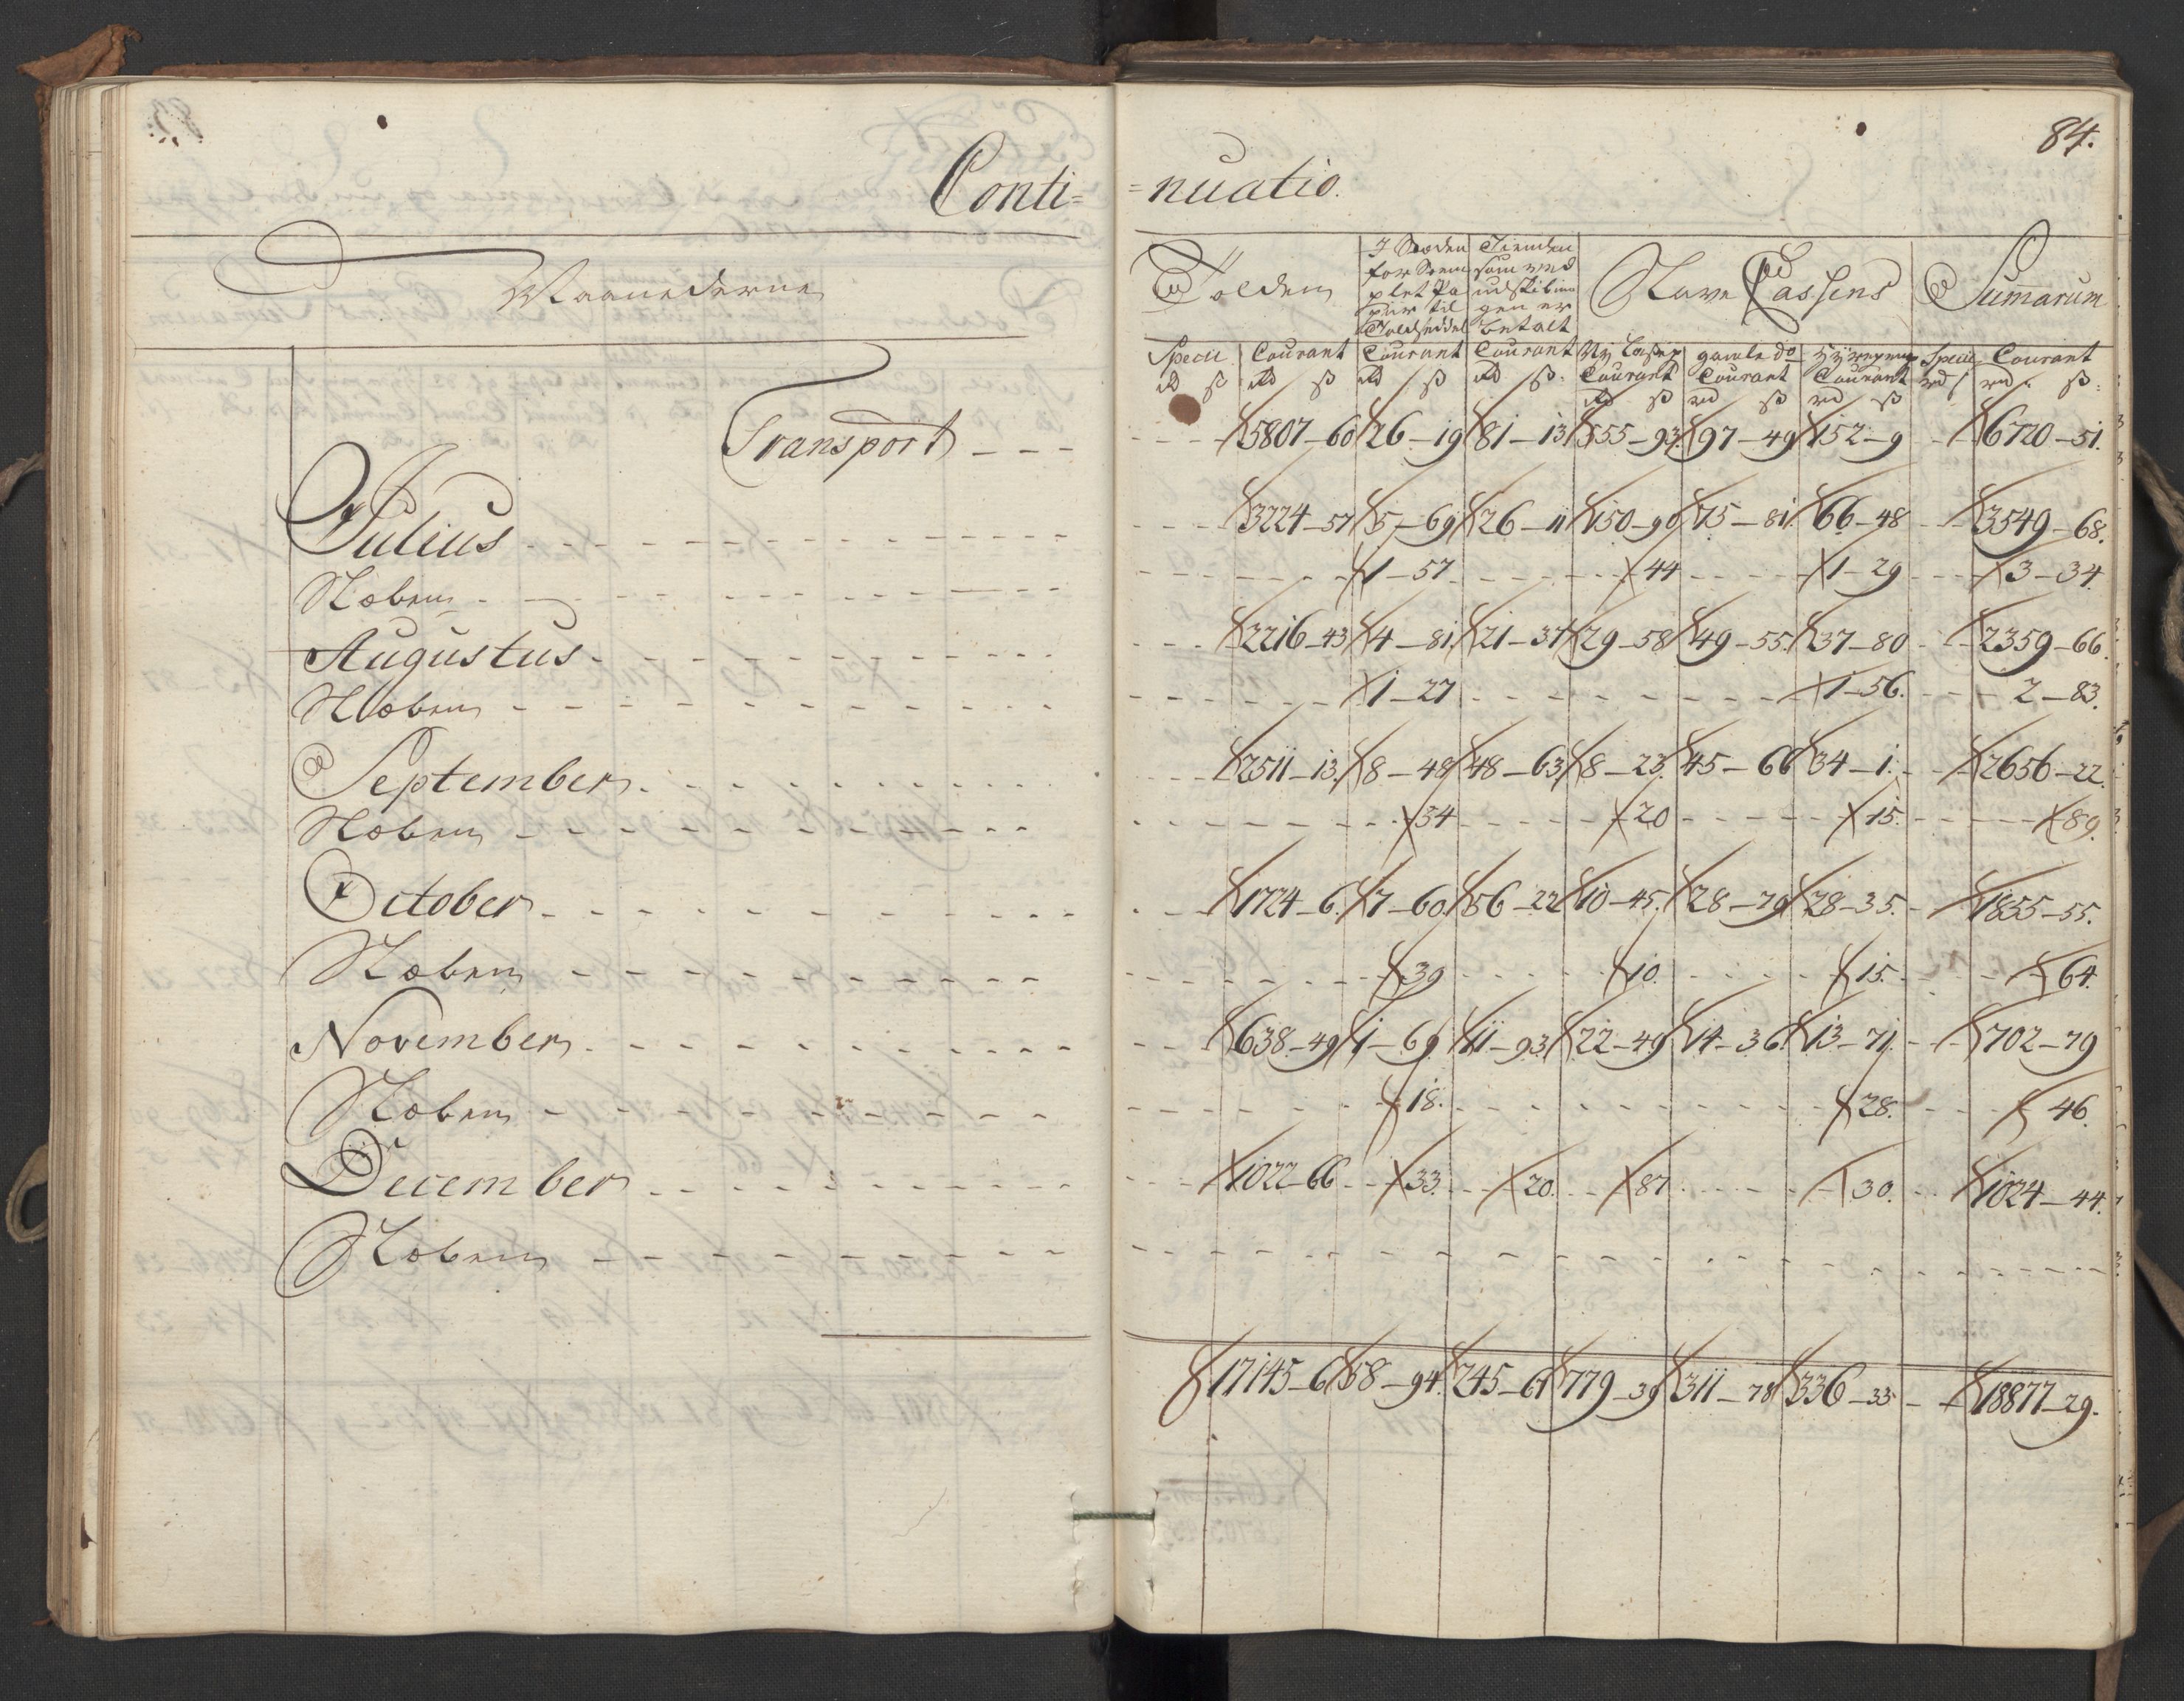 84.
Conti= =nuatio.
Maanederne Tolden I Steden for Stemplet Papiir til Toldsedel Tienden som ved udskibningen er betalt Slave Cassens Sumarum
Specie Courant Courant Courant Ny Casse Courant gamle do Courant Courant Specie Courant
rd ß rd ß rd ß rd ß rd ß rd ß rd ß rd ß
Transport - - - 5807-60 26-19 81-13 555-93 97-49 152-9 6720-51.
Julius - - - 3224-57 5-69 26-11 150-90 75-81 66-48 3549-68.
- - - 1-57 44 1-29 3-34
Augustus - - - 2216-43 4-81 21-37 29-58 49-55 37-80 2359-66.
- - - 1-27 1-56. 2-83.
September - - - 2511-13 8-48 48-63 8-23 45-66 34-1. 2656-22.
- - - 34 20 15. 89.
October - - - 1724-6. 7-60 56-22 10-45 28-79 28-35. 1855-55.
- - - 39 10. 15. 64.
November - - - 638-49 1-69 11-93 22-49 14-36 13-71 702-79
- - - 18. 28. 46.
December - - - 1022-66 33. 20. 87 30. 1024-44.
17145-6 58-94. 245-67 779-39 311-78 336-33 18877-29.